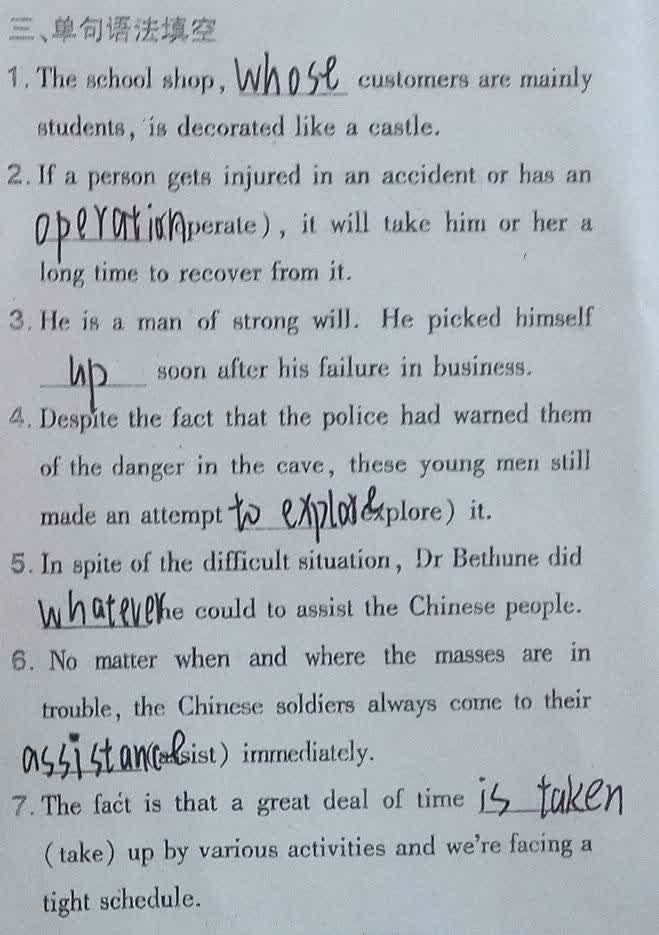 三、单句语法填空
1. The school shop, whose customers are mainly
students, is decorated like a castle.
2. If a person gets injured in an accident or has an
operation perate), it will take him or her a
long time to recover from it.
3. He is a man of strong will. He picked himself
up soon after his failure in business.
4. Despite the fact that the police had warned them
of the danger in the cave, these young men still
made an attempt to explore xplore) it.
5. In spite of the difficult situation, Dr Bethune did
whatever he could to assist the Chinese people.
6. No matter when and where the masses are in
trouble, the Chinese soldiers always come to their
assistance (assist) immediately.
7. The fact is that a great deal of time is taken
(take) up by various activities and we're facing a
tight schedule.